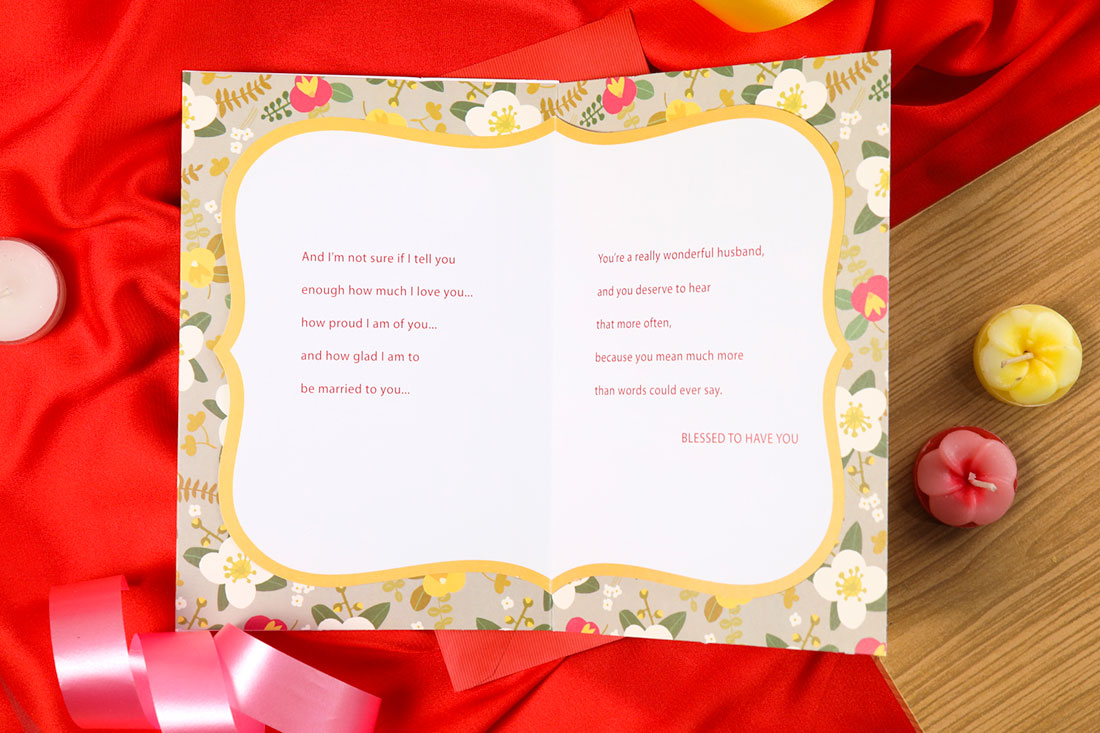 And I'm not sure if I tell you
enough how much I love you...
how proud I am of you...
and how glad I am to
be married to you...
You're a really wonderful husband,
and you deserve to hear
that more often,
because you mean much more
than words could ever say.
BLESSED TO HAVE YOU